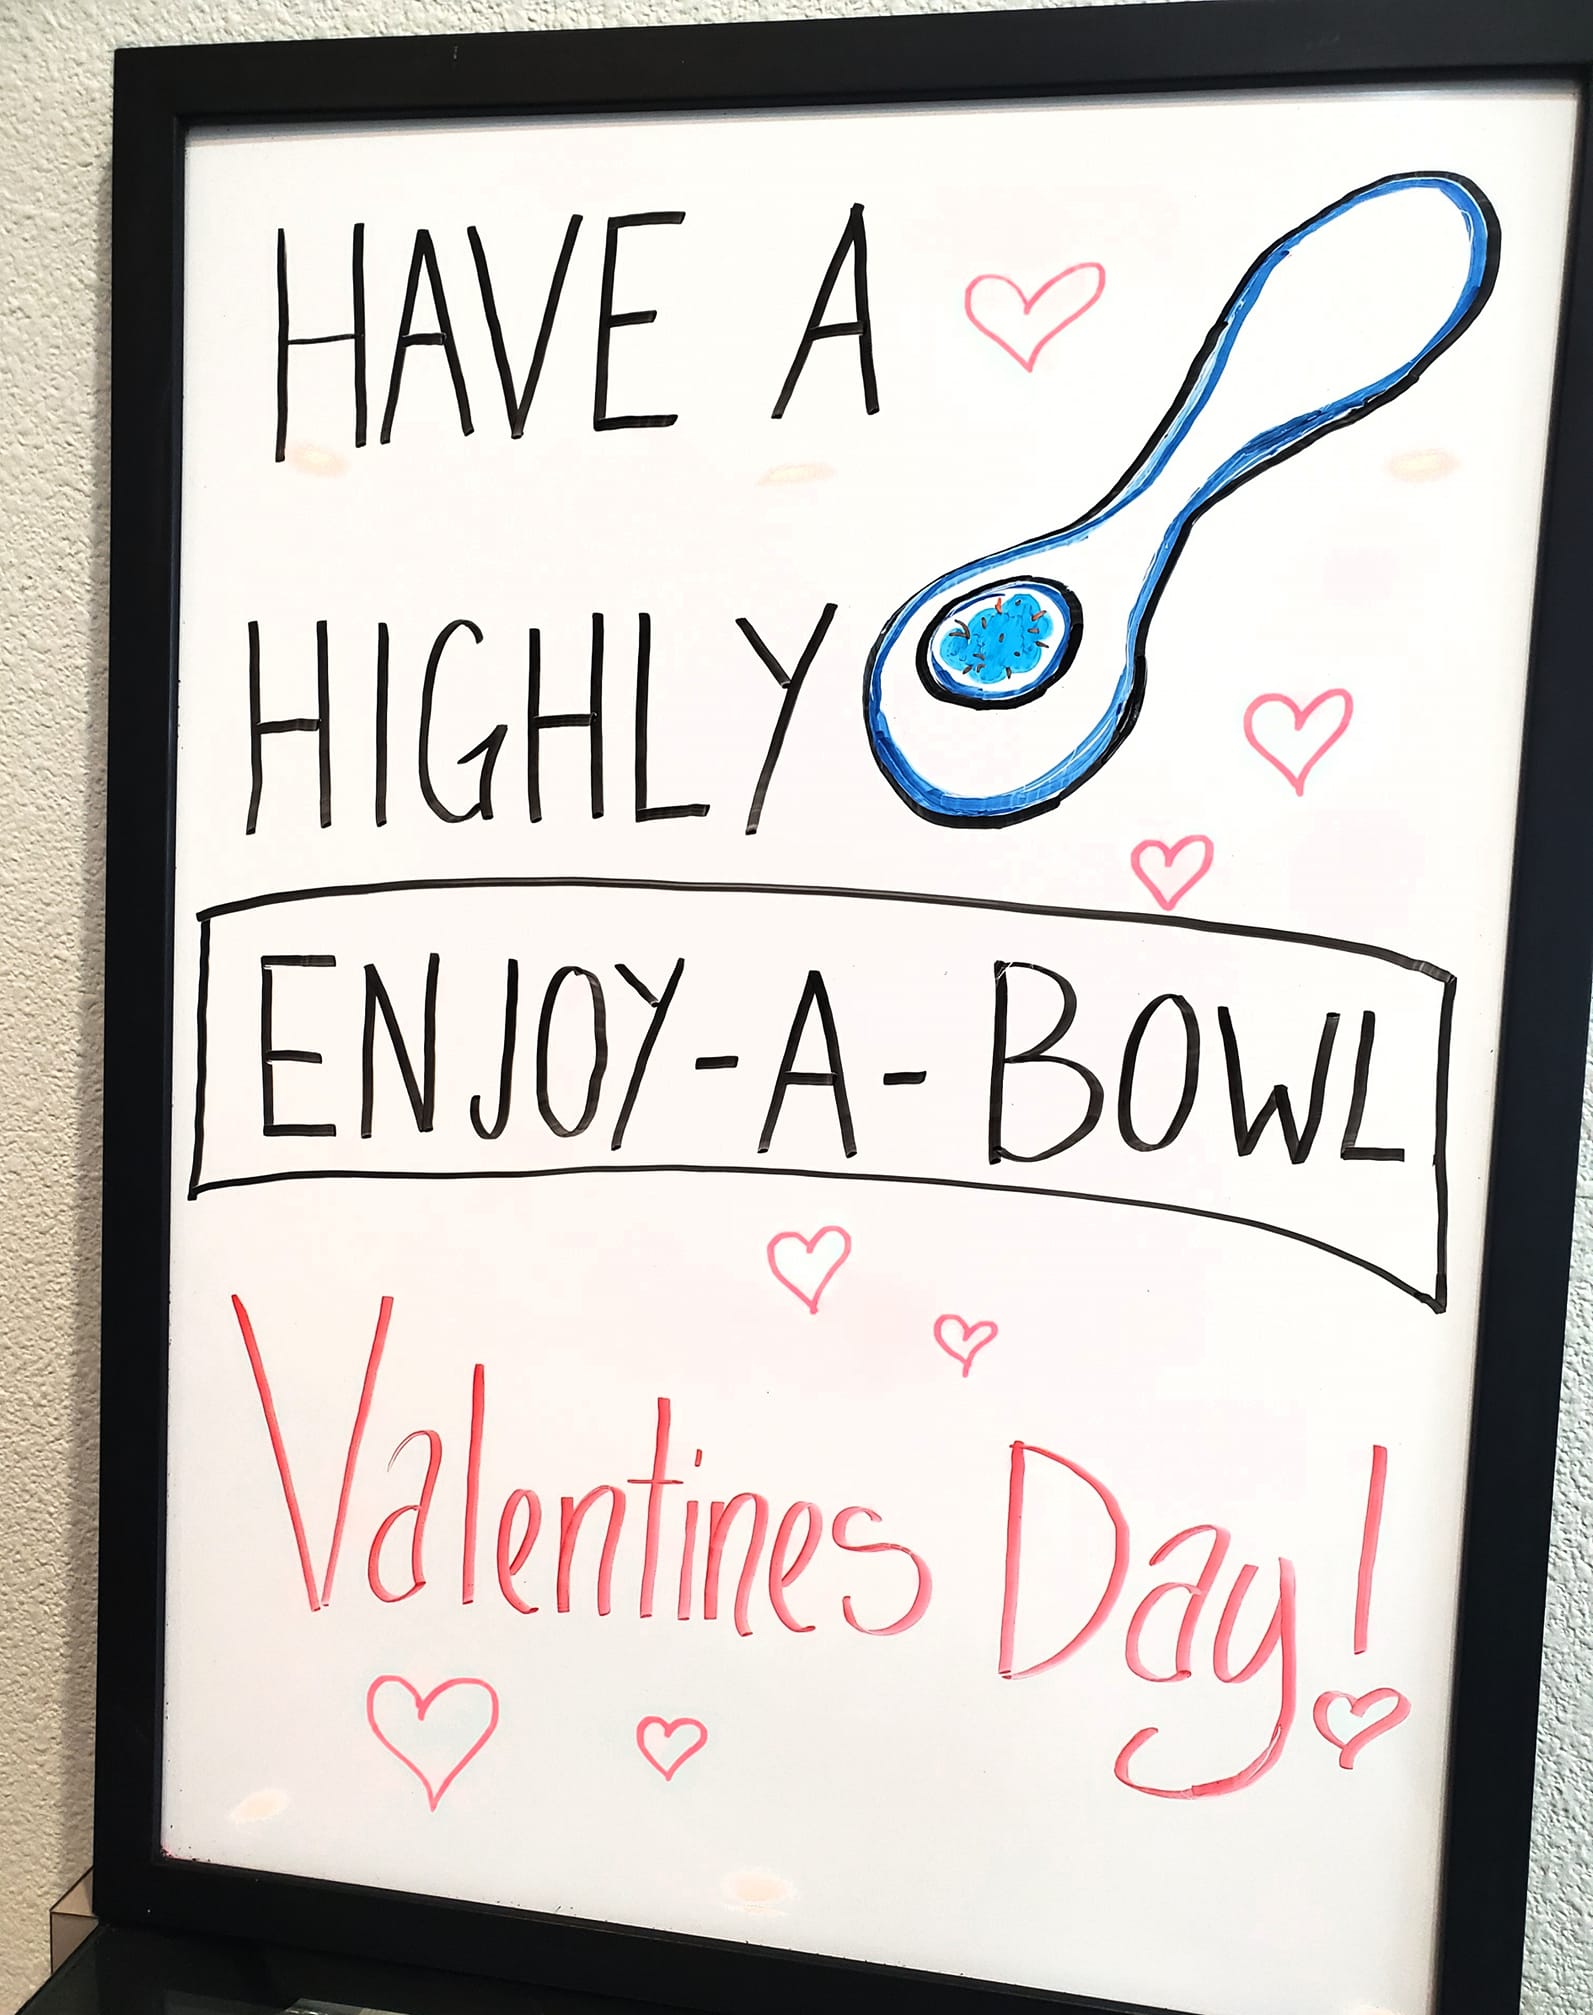 HAVE A
HIGHLY
ENJOY-A-BOWL
Valentines Day!